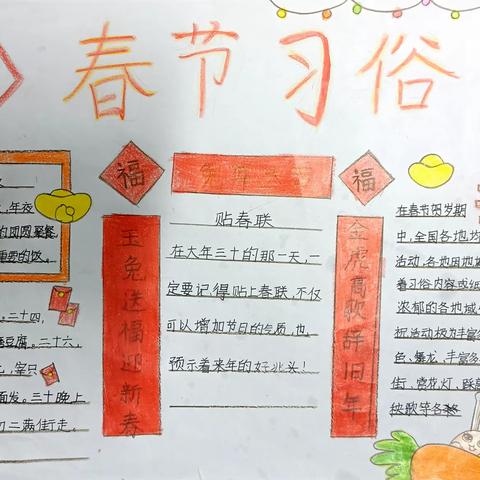 春节习俗
福
福
贴春联
在大年三十的那一天,一
定要记得贴上春联,不仅
可以增加节日的气质,也
预示着来年的好兆头!
玉兔送福迎新春
金虎高歌辞旧年
,年夜
的团圆聚餐
重要的饭。
。二十四,
豆腐。二十六,
,宰只
面发。三十晚上
初二满街走。
在春节贺岁期
中,全国各地均
活动,各地因地
着习俗内容或细
浓郁的各地域
祝活动极为丰富多
色、舞龙、
街、赏花灯、踩
秧歌等各